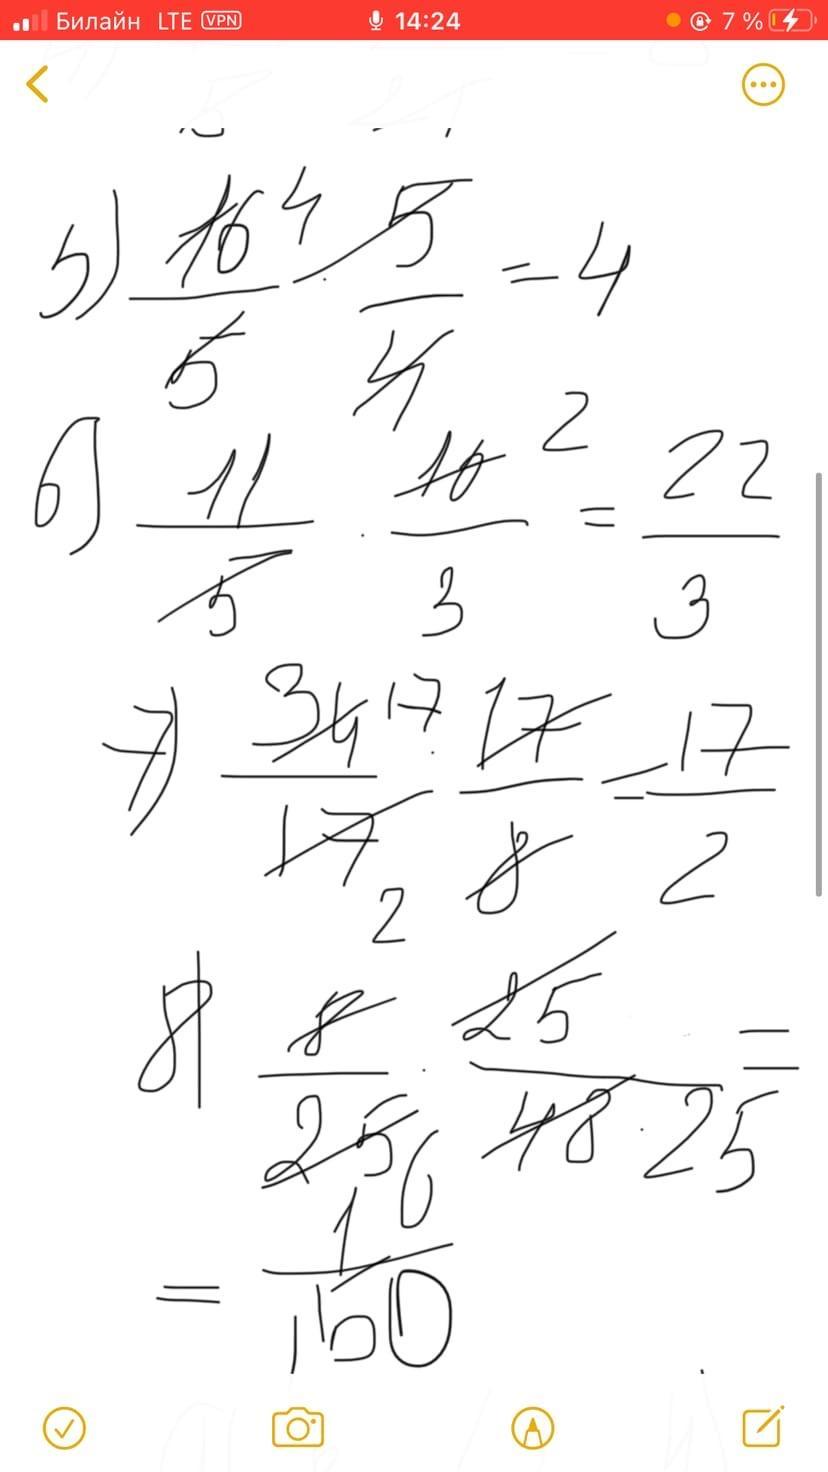 Билайн LTE VPN 14:24 7 %
5) 16/5 4 · 5/4 = 4
6) 11/5 · 10/3 2 = 22/3
7) 34/17 17 · 17/8 2 = 17/2
8) 8/25 · 25/48·25 6 =
= 1/150